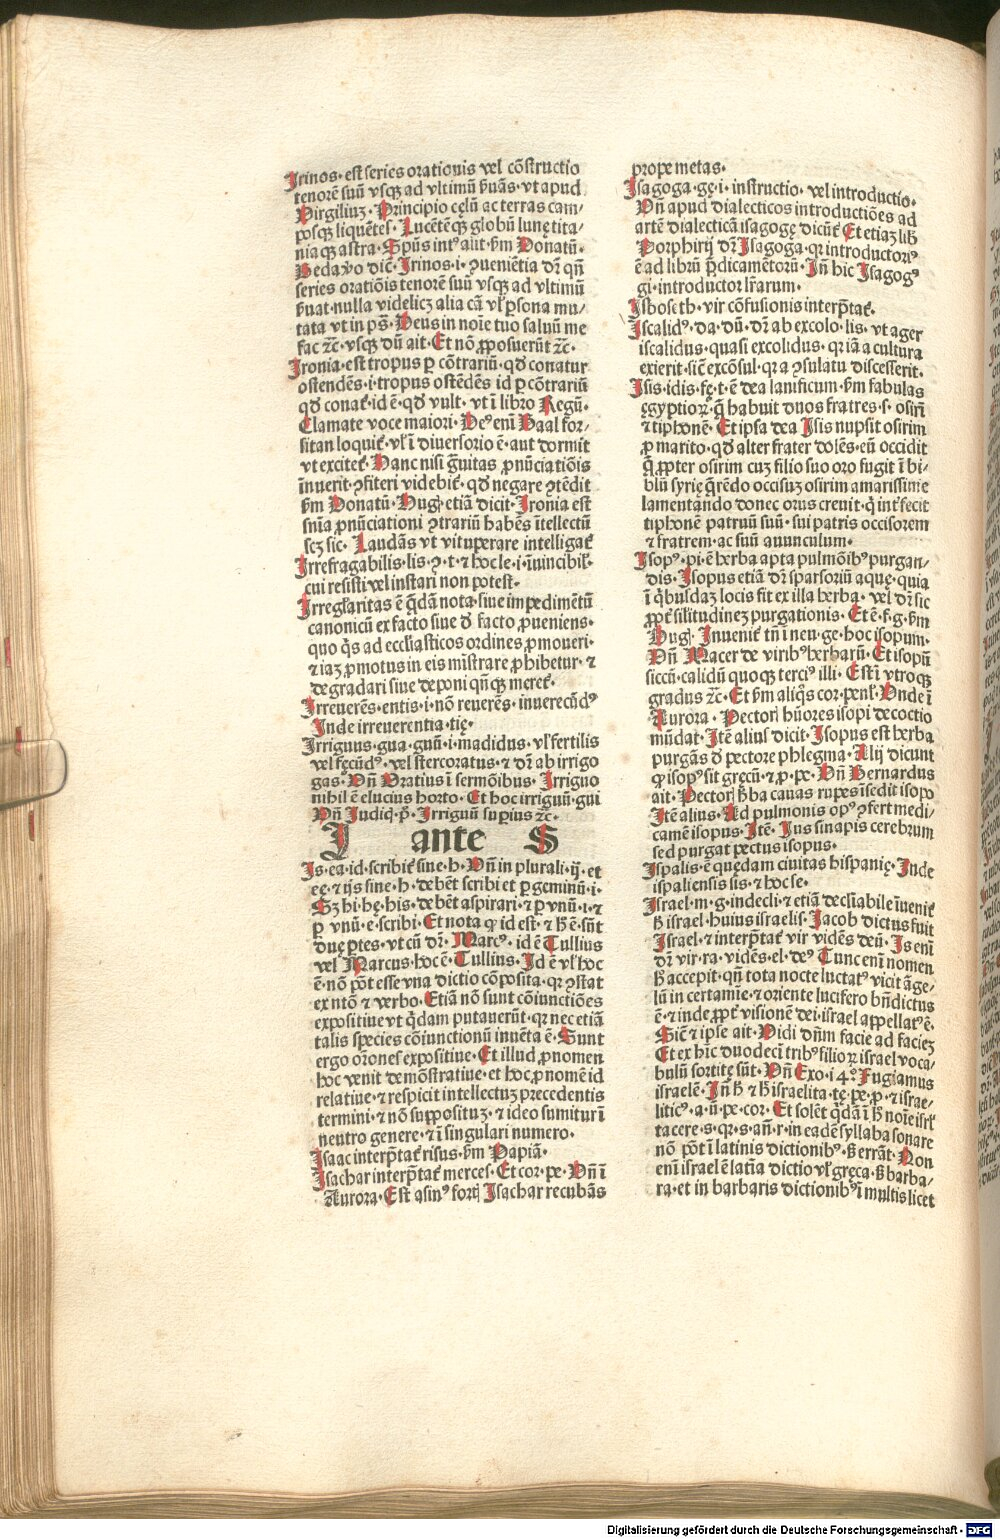 Irinos· est series orationis vel cõstructio
tenorẽ suũ vsqꝫ ad vltimũ ẜuãs· vt apud
Virgiliuꝫ· Principio cęlũ ac terras cam⸗
posqꝫ liquẽtes· Lucẽtẽqꝫ globũ lunę tita⸗
niaqꝫ astra· Spũs intꝰ alit ẜm Donatũ·
Beda ṽo dic̃· Irinos·i· ꝯueniẽtia dr̃ qñ
series oratiõis tenorẽ suũ vsqꝫ ad vltimũ
ẜuat· nulla videlicꝫ alia cã vl̓ ꝑsona mu⸗
tata vt in ps̃· Deus in noĩe tuo saluũ me
fac ⁊c̃· vsqꝫ dũ ait· Et nõ ꝓposuerũt ⁊c̃·
Ironia· est tropus ꝑ cõtrariũ· qd̓ conatur
ostendẽs·i· tropus ostẽdẽs id ꝑ cõtrariũ
qd̓ conat᷑· id ẽ· qd̓ vult· vt ĩ libro Regũ·
Clamate voce maiori· Deꝰ enĩ Baal for⸗
sitan loquit᷑· vl̓ ĩ diuersorio ẽ· aut dormit
vt excitet᷑· Hanc nisi g̃uitas ꝓnũciatiõis
ĩnuerit· ꝯfiteri videbit᷑· qd̓ negare ꝯtẽdit
ẜm Donatũ· Hug̓ etiã dicit· Ironia est
sñia ꝓnũciationi ꝯtrariũ habẽs ĩtellectũ
scꝫ sic· Laudãs vt vituperare intelligat᷑
Irrefragabilis·lis·ꝯ·t·⁊ hoc le·i· ĩuincibil̓·
cui resisti vel instari non potest·
Irregl̓aritas ẽ q̃dã nota· siue impedimẽtũ
canonicũ ex facto siue d̓ facto ꝓueniens·
quo q̃s ad eccl̓iasticos ordines ꝓmoueri·
⁊ iaꝫ ꝓmotus in eis mĩstrare ꝓhibetur· ⁊
degradari siue deponi qñqꝫ meret᷑·
Irreuerẽs·entis·i· nõ reuerẽs· inuerecũdꝰ
Inde irreuerentia·tię·
Irriguus·gua·guũ·i· madidus· vl̓ fertilis
vel fęcũdꝰ· vel stercoratus· ⁊ dr̃ ab irrigo
gas· Vñ Oratius ĩ sermõibus· Irriguo
nihil ẽ elucius horto· Et hoc irriguũ·gui
Vñ Iudiq̃·p̃· Irriguũ supius ⁊c̃·
I ante S
Is·ea·id· scribit᷑ sine·h· Vñ in plurali·ij· et
eę·⁊ ijs sine·h· debẽt scribi et ꝑ geminũ·i·
Sꝫ hi·hę·his· debẽt aspirari· ⁊ ꝑ vnũ·i·⁊
ꝑ vnũ·e· scribi· Et nota ꝙ id est·⁊ h̓ ẽ· sũt
duę ꝑtes· vt cũ dr̃· Marcꝰ· id ẽ Tullius
vel Marcus· hoc ẽ· Tullius· Id ẽ vl̓ hoc
ẽ· nõ põt esse vna dictio cõposita· qꝛ ꝯstat
ex noĩe ⁊ verbo· Etiã nõ sunt cõiunctiões
expositiue vt q̃dam putauerũt· qꝛ nec etiã
talis species cõiunctionũ inuẽta ẽ· Sunt
ergo or̃ones expositiue· Et illud ꝓnomen
hoc venit demõstratiue· et hoc ꝓnomẽ id
relatiue· ⁊ respicit intellectuꝫ precedentis
termini· ⁊ nõ suppositũꝫ· ⁊ ideo sumitur ĩ
neutro genere· ⁊ ĩ singulari numero·
Isaac interp̃tat᷑ risus· ẜm Papiã·
Isachar interp̃tat᷑ merces· Et cor·pe· Vñ ĩ
Aurora· Est asinꝰ fortꝭ Isachar recubãs
prope metas·
Isagoga·gę·i· instructio· vel introductio·
Vñ apud dialecticos introductiões ad
artẽ dialecticã isagogę dicũt᷑ Et etiaꝫ lib̓
Porphirij dr̃ Isagoga· qꝛ introductoriꝰ
ẽ ad librũ p̃dicamẽtorũ· Iñ hic Isagogꝰ
gi· introductor lr̃arum·
Isboseth· vir cõfusionis interp̃tat᷑·
Iscalidꝰ·da·dũ· dr̃ ab excolo·lis· vt ager
iscalidus· quasi excolidus· qꝛ iã a cultura
exierit· sic̃ excõsul· qꝛ a ꝯsulatu discesserit·
Isis·idis·fę·t·ẽ dea lanificum· ẜm fabulas
ęgyptioꝝ· q̃ habuit duos fratres·s· osirĩ
⁊ tiphonẽ· Et ipsa dea Isis nupsit osirim
ꝓ marito· qd̓ alter frater dolẽs· eũ occidit
q̃ ꝓpter osirim cuꝫ filio suo oro fugit ĩ bi⸗
blũ syrię q̃rẽdo occisuꝫ osirim amarissime
lamentando donec orus creuit· q̃ int̓fecit
tiphonẽ patruũ suũ· sui patris occisorem
⁊ fratrem· ac suũ auunculum·
Isopꝰ·pi·ẽ herba apta pulmõibꝰ purgan⸗
dis· Isopus etiã dr̃ sparsoriũ aquę· quia
ĩ q̃busdaꝫ locis fit ex illa herba· vel dr̃ sic
ꝓpt̓ sil̓itudineꝫ purgationis· Et ẽ·f·g·ẜm
Hug̓· Inuenit᷑ tñ ĩ neu·ge· hoc isopum·
Vñ Macer de viribꝰ herbarũ· Et isopũ
siccũ· calidũ quoqꝫ terciꝰ illi· Est ĩ vtroqꝫ
gradus ⁊c̃· Et ẜm aliq̃s cor·penl̓· Vnde ĩ
Aurora· Pectorꝭ hũores isopi decoctio
mũdat· Itẽ alius dicit· Isopus est herba
purgãs d̓ pectore phlegma· Alij dicunt
ꝙ isopꝰ sit gręcũ·⁊·p·pe· Vñ Bernardus
ait· Pectorꝭ h̓ba cauas rupes ĩsedit isopo
Itẽ alius· Ad pulmonis opꝰ ꝯfert medi⸗
camẽ isopus· Itẽ· Ius sinapis cerebrum
sed purgat pectus isopus·
Ispalis·ẽ quędam ciuitas hispanię· Inde
ispaliensis·sis·⁊ hoc se·
Israel·m·g· indecli·⁊ etiã decl̓iabile ĩuenit᷑
h̓ israel·huius israelis· Iacob dictus fuit
Israel·⁊ interp̃tat᷑ vir vidẽs deũ· Is enĩ
dr̃ vir·ra·vidẽs·el·deꝰ Tunc enĩ nomen
h̓ accepit· qñ tota nocte luctatꝰ vicit ãge⸗
lũ in certamĩe·⁊ oriente lucifero bñdictus
ẽ·⁊ inde ꝓpt̓ visionẽ dei· israel appellatꝰ ẽ·
Sic̃ ⁊ ipse ait· Vidi dñm facie ad facieꝫ
Et ex hĩc duodecĩ tribꝰ filioꝝ israel voca⸗
bulũ sortitę sũt· Vñ Exo·i4°· Fugiamus
israelẽ· Iñ h̓ ⁊ h̓ israelita·tę·pe·p·⁊ israe⸗
liticꝰ·a·ũ·pe·cor· Et solẽt q̃dã ĩ h̓ noĩe isrl̓
tacere·s·qꝛ·s·añ·r·in eadẽ syllaba sonare
nõ põt ĩ latinis dictionibꝰ· ẞ errãt· Non
enĩ israel ẽ latĩa dictio vl̓ gręca· ẞ barba⸗
ra· et in barbaris dictionibꝰ ĩ multis licet
Digitalisierung gefördert durch die Deutsche Forschungsgemeinschaft - DFG